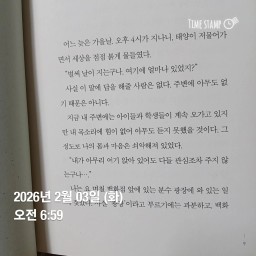 TIME STAMP
어느 늦은 가을날, 오후 4시가 지나니, 태양이 저물어가
면서 세상을 점점 붉게 물들였다.
"벌써 날이 지는구나, 여기에 얼마나 있었지?"
사실 이 말에 답을 해줄 사람은 없다. 주변에 아무도 없
기 때문은 아니다.
지금 내 주변에는 아이들과 학생들이 계속 오가고 있지
만 내 목소리에 힘이 없어 아무도 듣지 못했을 것이다. 그
정도로 나의 몸과 마음은 쇠약해져 있었다.
"내가 아무리 여기 앉아 있어도 다들 관심조차 주지 않
는구나…."
나는 요 앞 백화점 앞에 있는 분수 광장에 와 있는
이라고 부르기에는 과분하고, 백화
2026년 2월 03일 (화)
오전 6:59